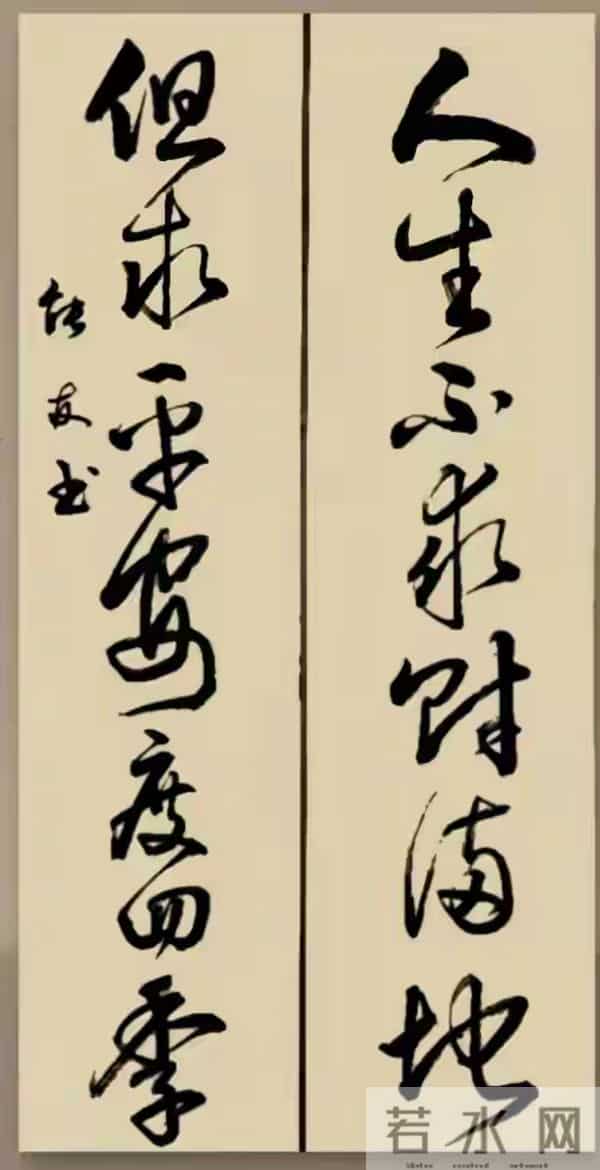 人生不求财满地
但求平安度四季
友书
若水网